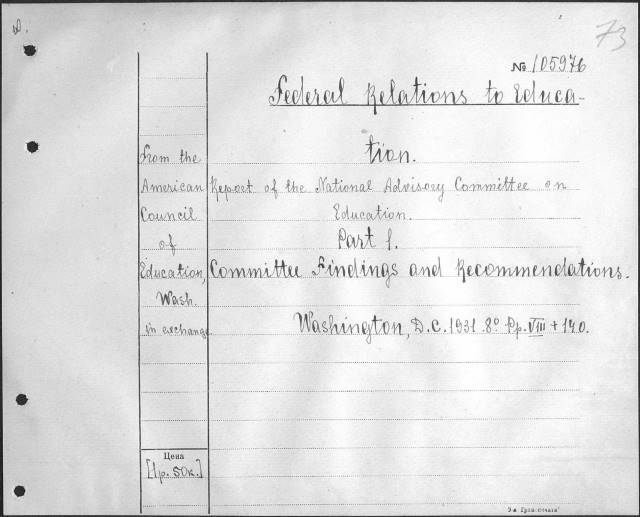 73
№ 105976
Federal Relations to Educa-
tion.
From the
American
Council
of
Education,
Wash.
in exchange
Report of the National Advisory Committee on
Education.
Part I.
Committee Findings and Recommendations.
Washington, D.C. 1931. 8º Pp. VIII + 140.
Цена
[1 р. 50к.]